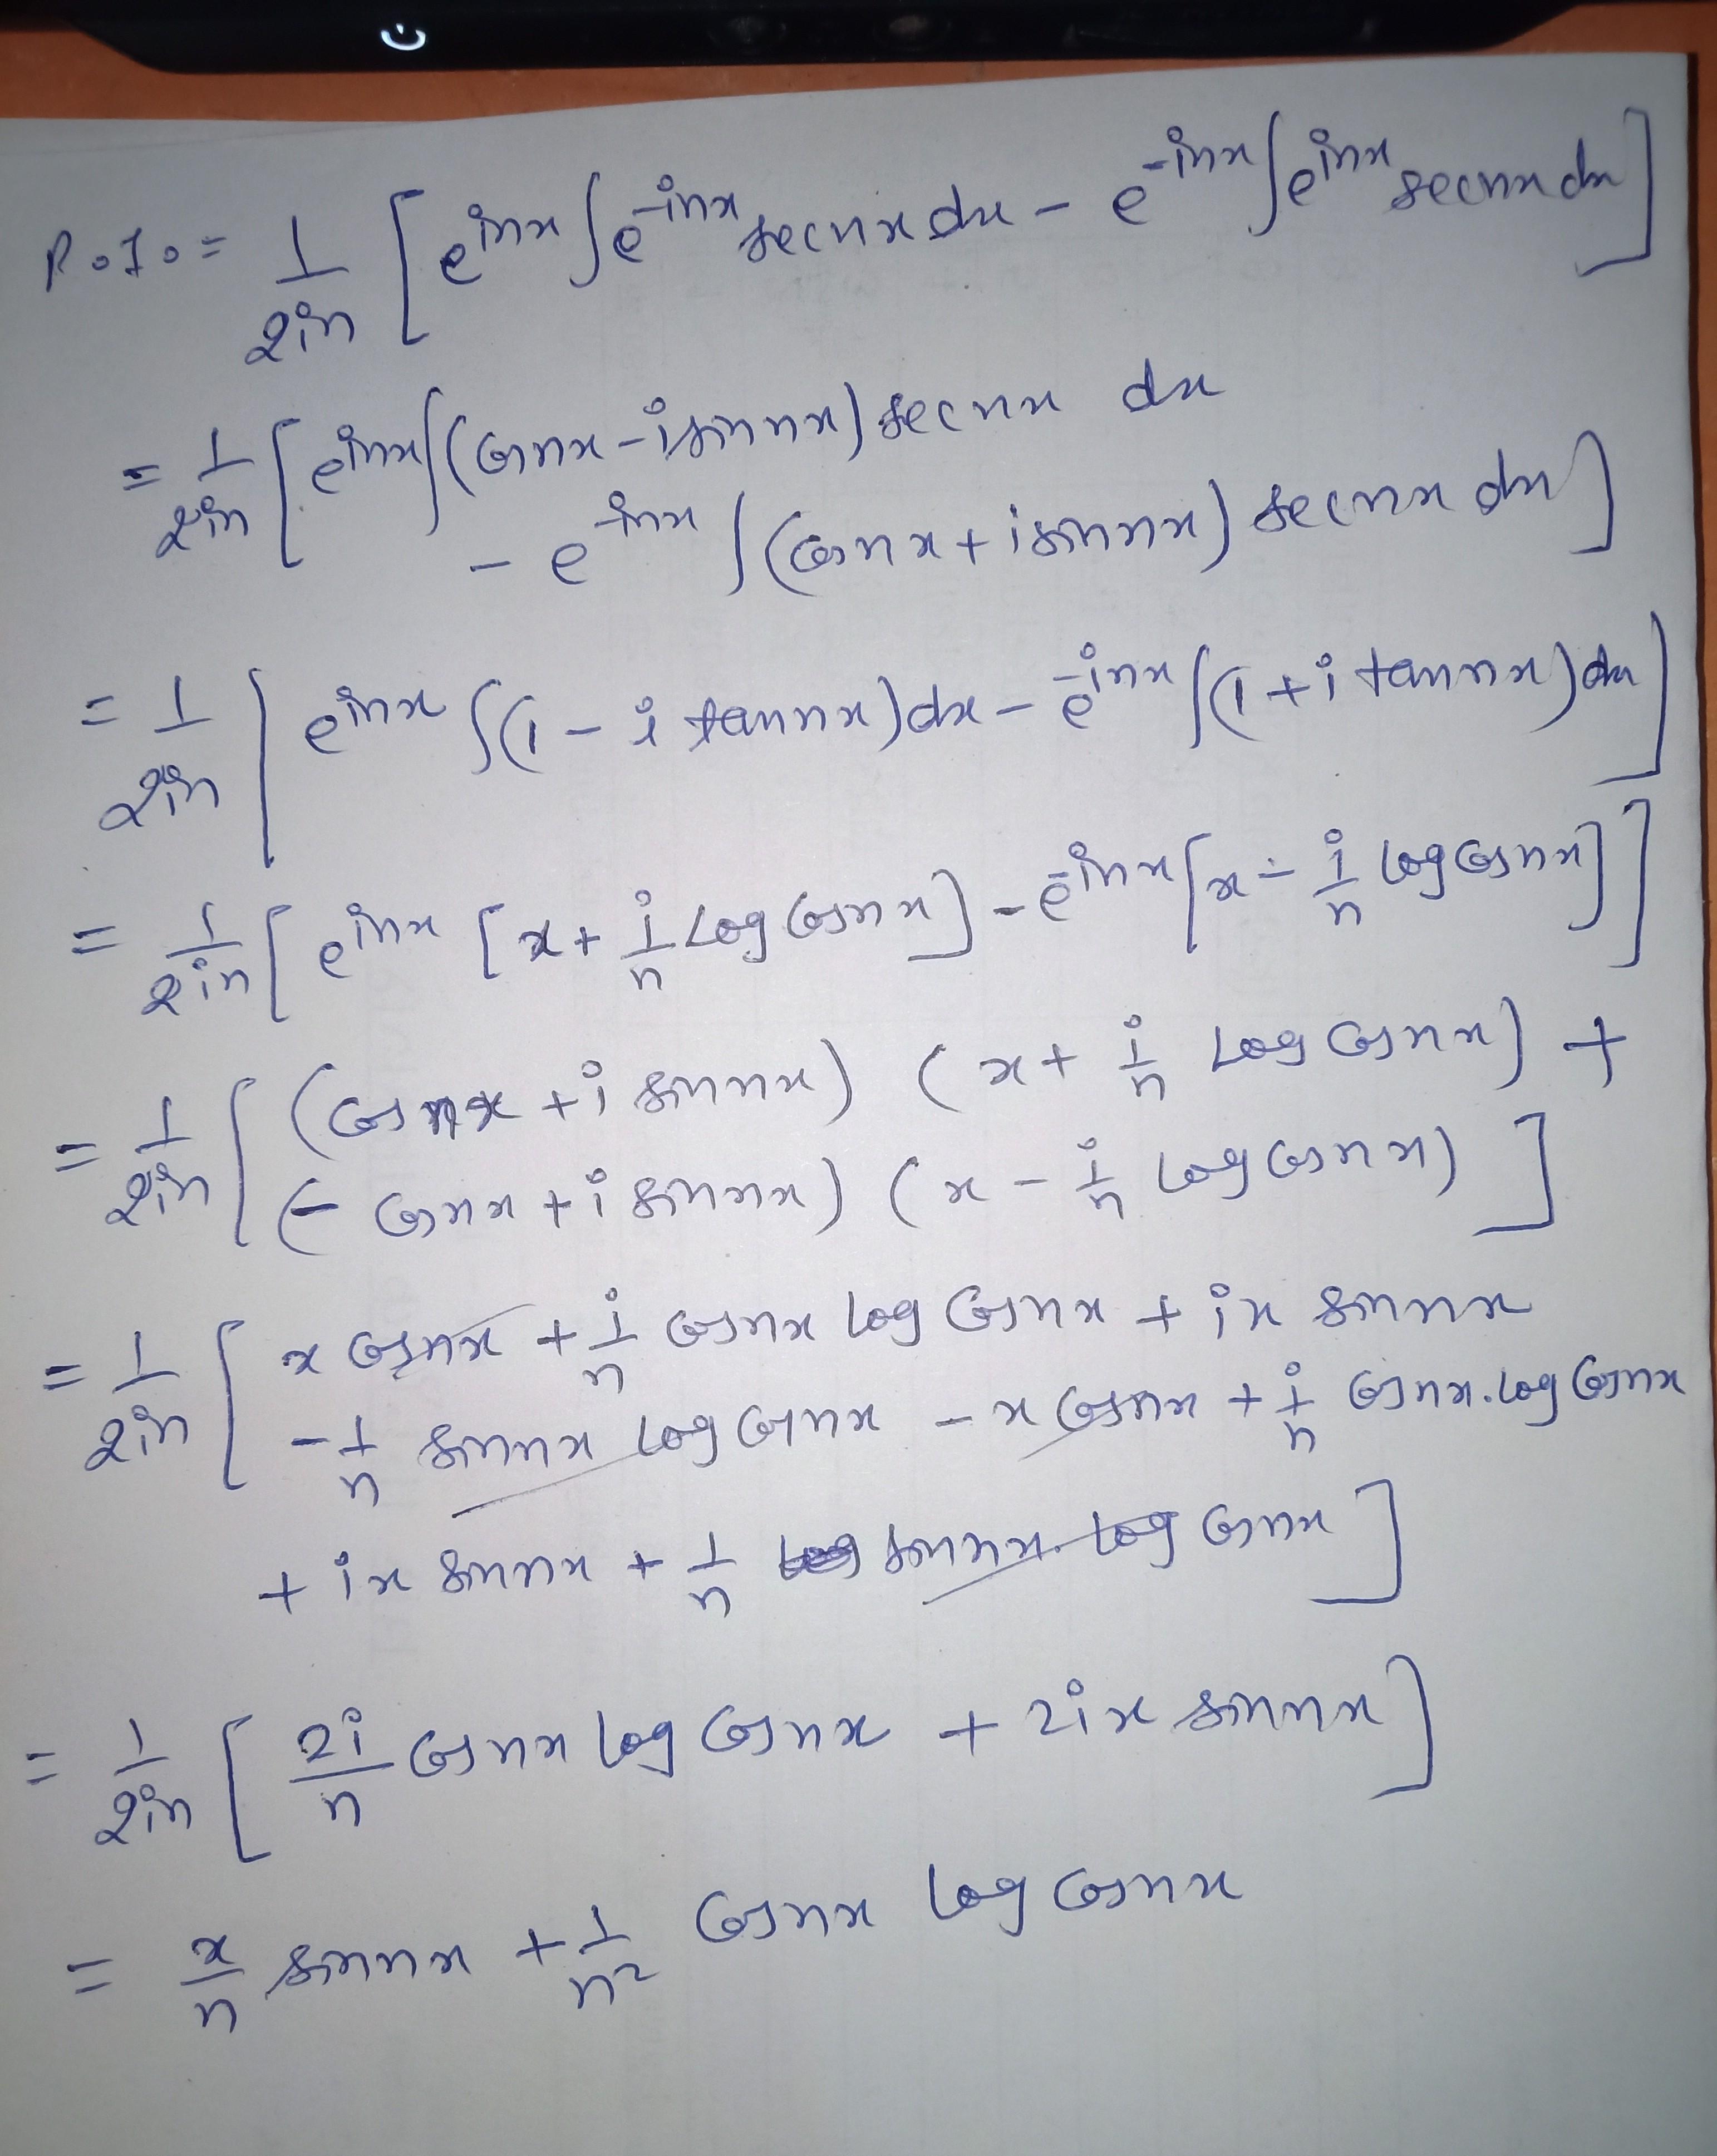 P.I. = 1/2in [e^inx ∫e^-inx secnx dx - e^-inx ∫e^inx secnx dx]
= 1/2in [e^inx ∫(Cosnx - isinnx) secnx dx
- e^-inx ∫(Cosnx + isinnx) secnx dx]
= 1/2in [e^inx ∫(1 - i tannx)dx - e^-inx ∫(1 + i tannx)dx]
= 1/2in [e^inx [x + i/n Log Cosnx] - e^-inx [x - i/n Log Cosnx]]
= 1/2in [(Cosnx + i sinnx) (x + i/n Log Cosnx) +
(- Cosnx + i sinnx) (x - i/n Log Cosnx)]
= 1/2in [x Cosnx + i/n Cosnx Log Cosnx + ix sinnx
- 1/n sinnx Log Cosnx - x Cosnx + i/n Cosnx . Log Cosnx
+ ix sinnx + 1/n sinnx . Log Cosnx]
= 1/2in [2i/n Cosnx Log Cosnx + 2ix sinnx]
= x/n sinnx + 1/n² Cosnx Log Cosnx